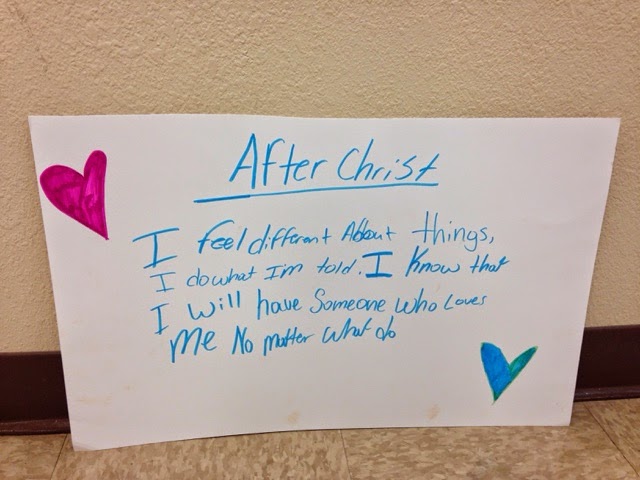 After Christ
I feel different About things,
I do what I'm told. I know that
I will have Someone who Loves
me No matter what do